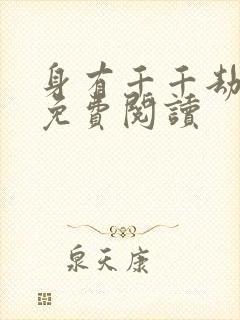 身有千千劫
免費閱讀
泉天康